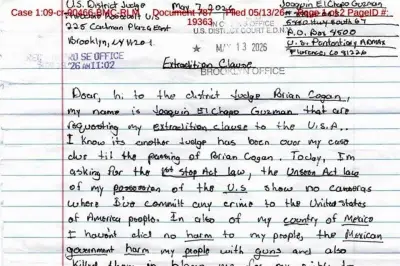 U.S. District Judge
May 7, 2026
Joaquin El Chapo Guzman
Theodore Roosevelt U.S
225 Cadman Plaza East
Brooklyn, NY 11201
Case 1:09-cr-00466-BMC-RLM Document 787 Filed 05/13/26 Page 1 of 2 PageID #:
19363
OFFICE
U.S. DISTRICT COURT E.D.N.Y.
★ MAY 13 2026
BROOKLYN OFFICE
PRO SE OFFICE
P.O. Box 8500
U.S. Penitentiary ADMAX
Florence, CO 81226
Extradition Clause
Dear, hi to the district Judge Brian Cogan,
my name is Joaquin El Chapo Guzman that are
requesting my extradition clause to the U.S.A..
I know its another Judge has been over my case
due til the passing of Brian Cogan. Today, I'm
asking for the 1st Step Act law, the Unseen Act law
of my possession of the U.S show no cameras
where I've commit any crime to the United States
of America people. In also of my country of Mexico
I havent did no harm to my people, the Mexican
government harm my people with guns and also